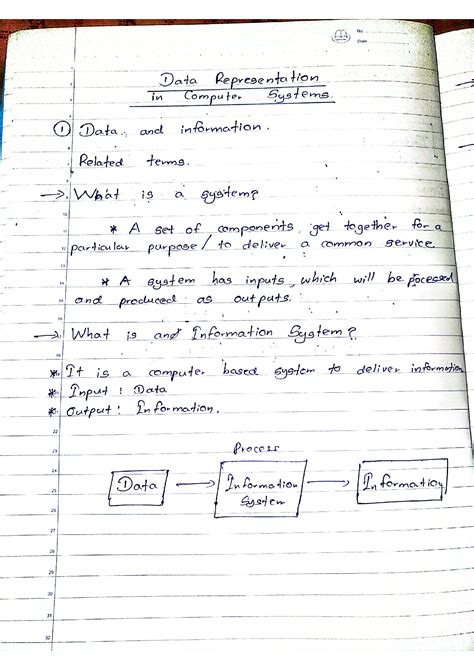 No.
Date
Data Representation
In Computer Systems.
① Data, and information.
Related terms.
→ What is a system?
* A set of components, get together for a
particular purpose / to deliver a common service
* A system has inputs, which will be pocessed
and produced as outputs.
→ What is and Information System?
* It is a computer based system to deliver information
* Input : Data
* Output : Information.
Process
Data → Information System → Information